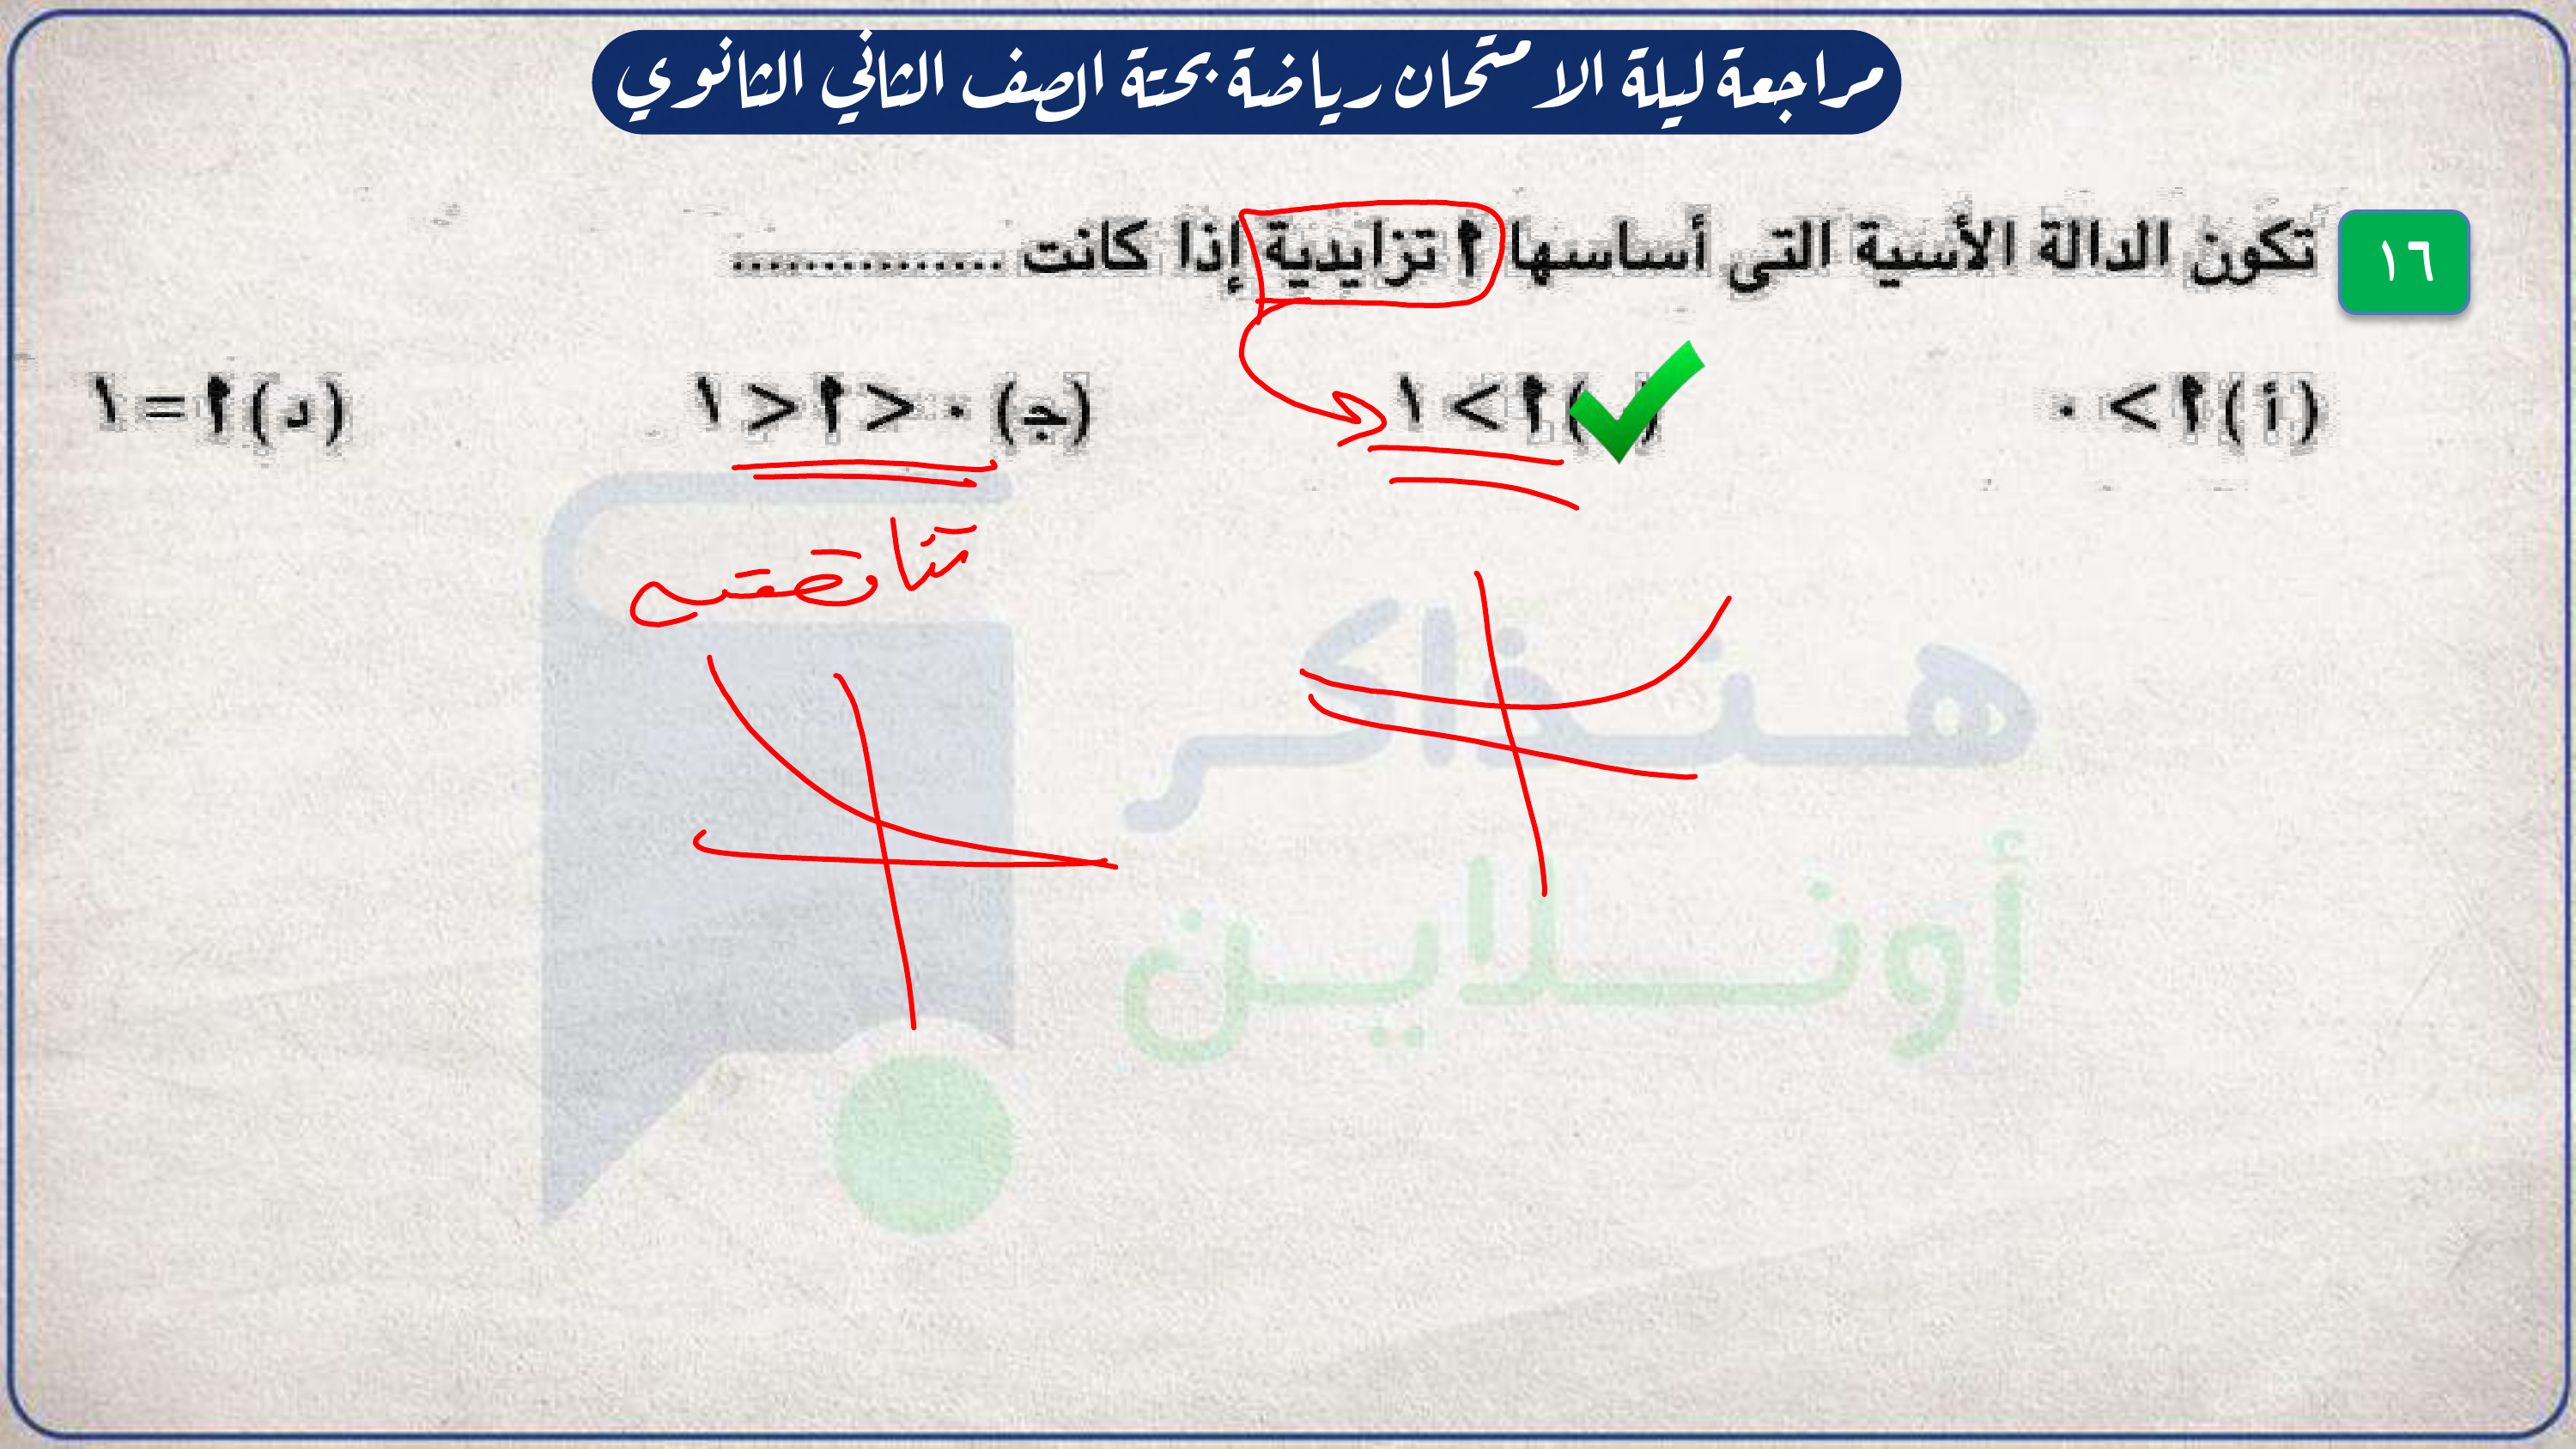 مراجعة ليلة الامتحان رياضة بحتة الصف الثاني الثانوي
١٦ تكون الدالة الأسية التى أساسها ٢ تزايدية إذا كانت ...............
(أ) ٢ > ٠ ( ) ٢ > ١ (جـ) ٠ < ٢ < ١ (د) ٢ = ١
تناقصية
هنذاكر
أونلاين